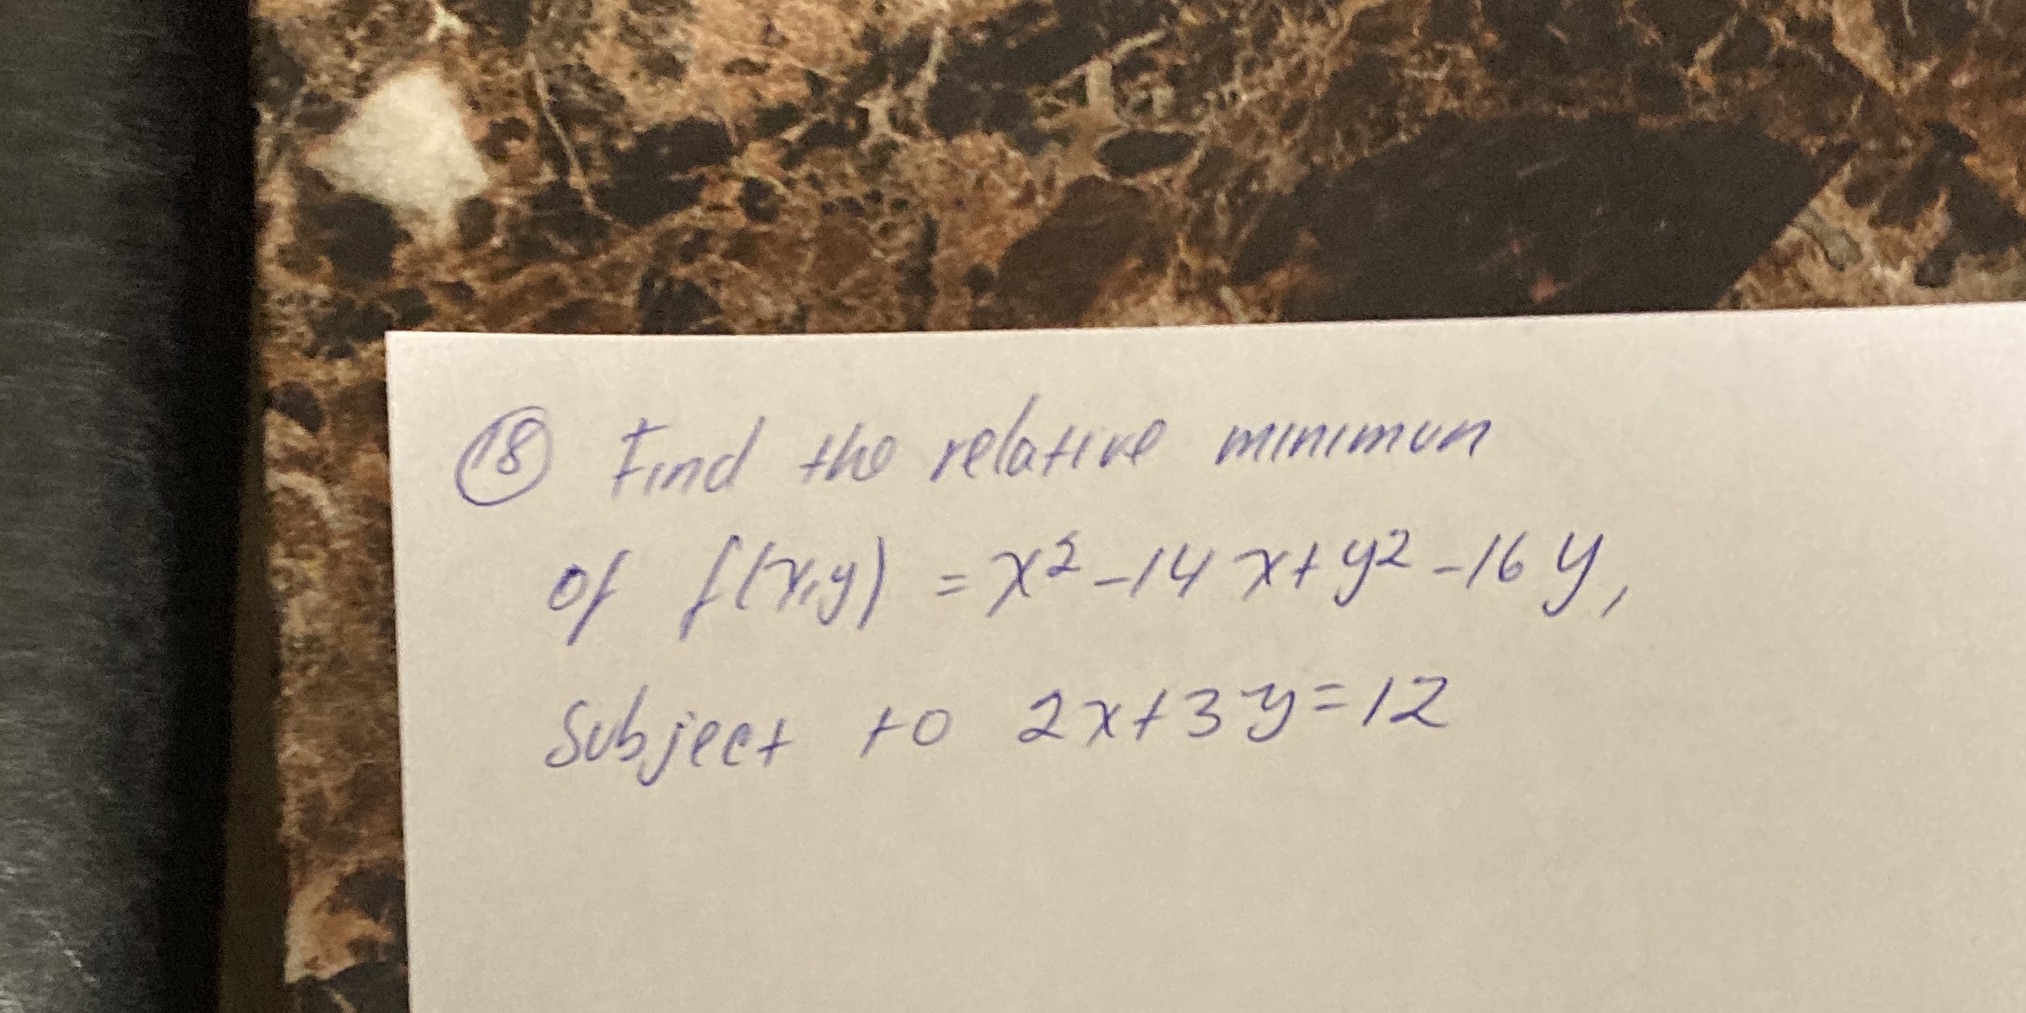 18 Find the relative minimun
of f(x,y) = x² -14x + y² -16y,
Subject to 2x+3y=12